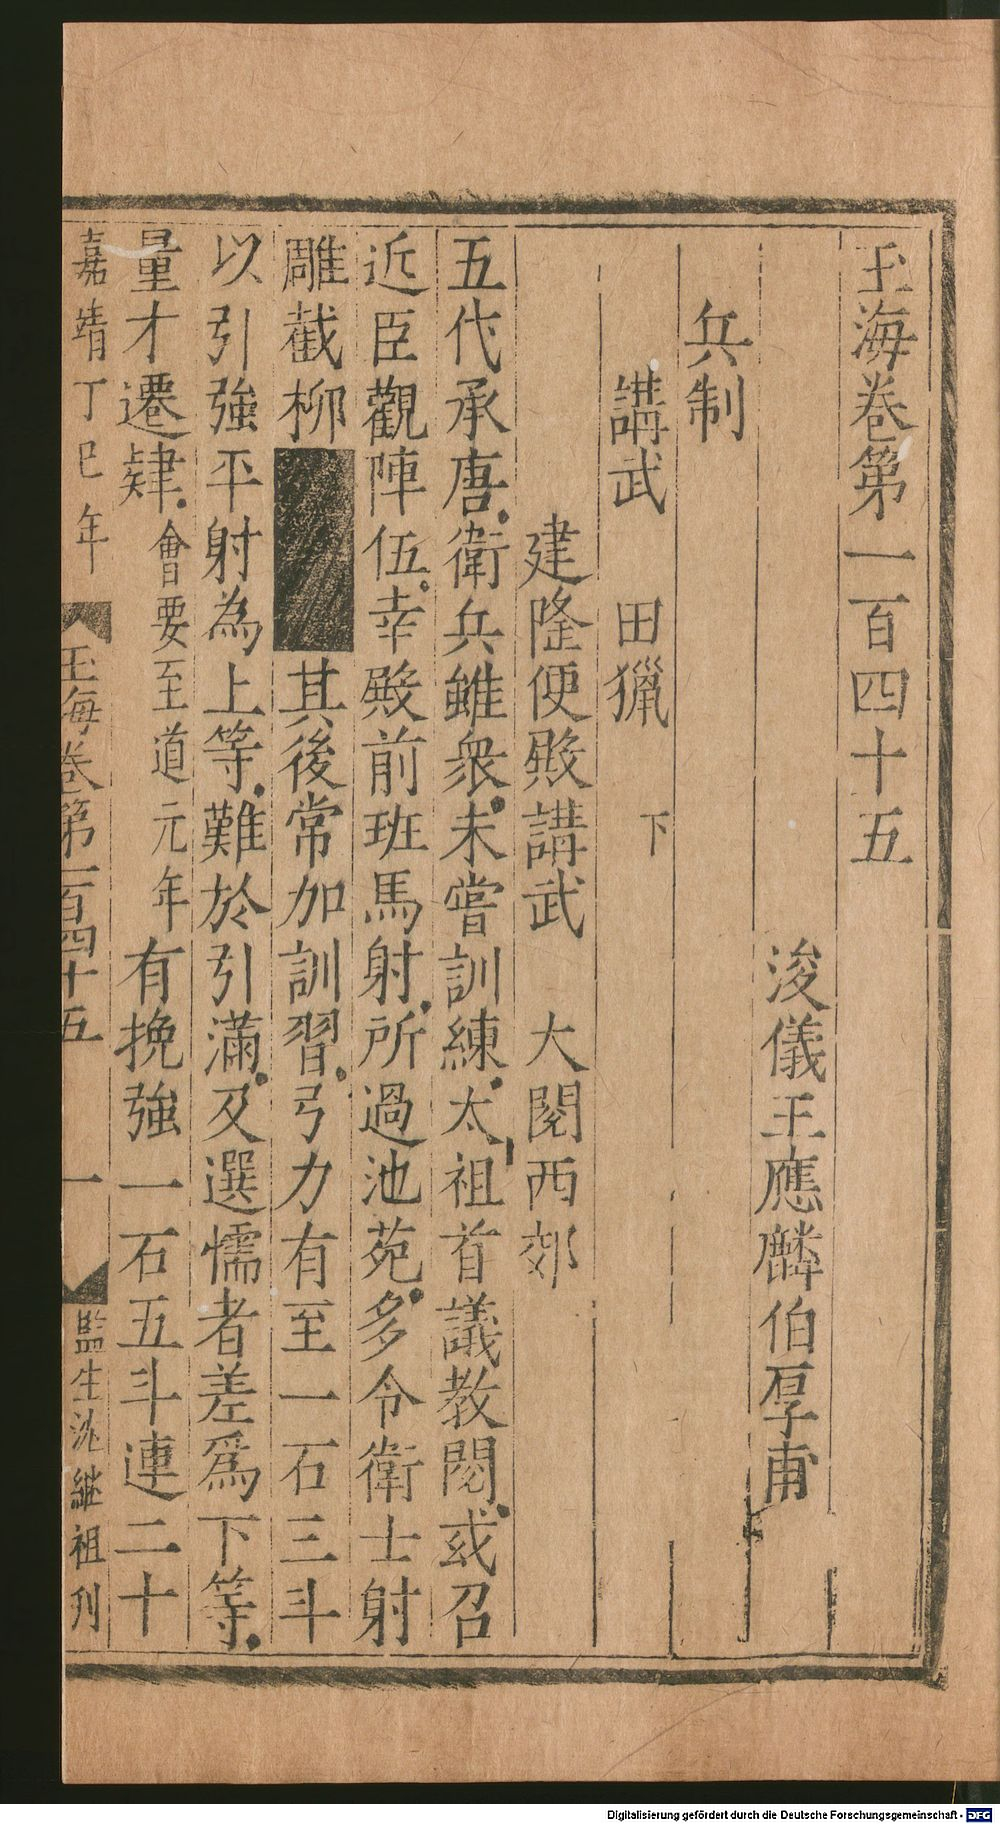 玉海卷第一百四十五
浚儀王應麟伯厚甫
兵制
講武 田獵 下
建隆便殿講武 大閱西郊
五代承唐衛兵雖衆未嘗訓練太祖首議教閱或召
近臣觀陣伍幸殿前班馬射所過池苑多令衛士射
雕截柳 其後常加訓習弓力有至一石三斗
以引強平射為上等難於引滿及選懦者差爲下等
量才遷肄會要至道元年有挽強一石五斗連二十
嘉靖丁巳年 玉海卷第一百四十五 一 監生 継祖刋
Digitalisierung gefördert durch die Deutsche Forschungsgemeinschaft - DFG